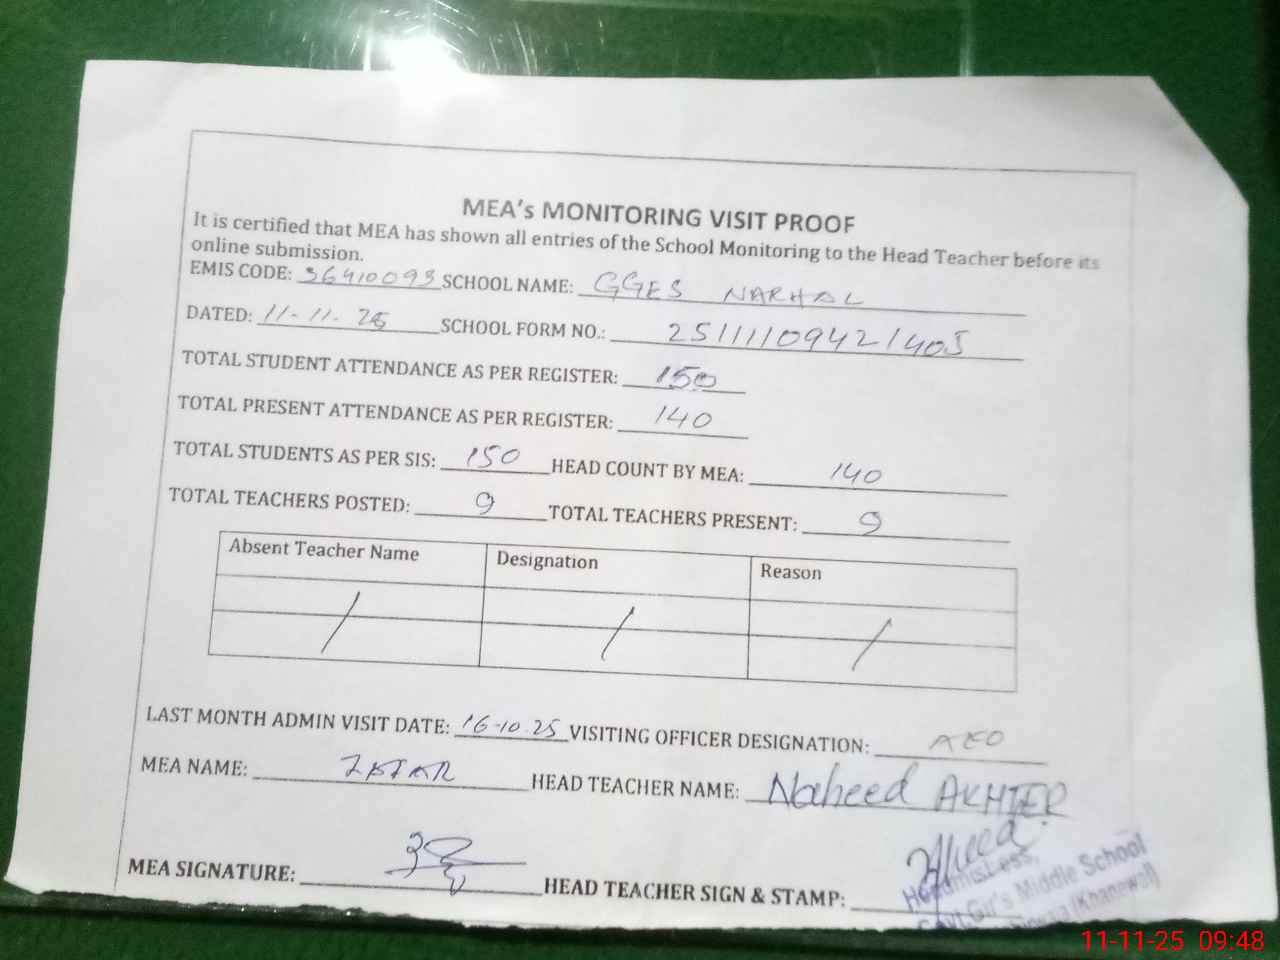 MEA's MONITORING VISIT PROOF
It is certified that MEA has shown all entries of the School Monitoring to the Head Teacher before its
online submission.
EMIS CODE: 36410093 SCHOOL NAME: GGES NARHAL
DATED: 11-11-25 SCHOOL FORM NO.: 25111109421405
TOTAL STUDENT ATTENDANCE AS PER REGISTER: 150
TOTAL PRESENT ATTENDANCE AS PER REGISTER: 140
TOTAL STUDENTS AS PER SIS: 150 HEAD COUNT BY MEA: 140
TOTAL TEACHERS POSTED: 9 TOTAL TEACHERS PRESENT: 9
Absent Teacher Name Designation Reason
/ / /
LAST MONTH ADMIN VISIT DATE: 16-10-25 VISITING OFFICER DESIGNATION: AEO
MEA NAME: ZAFAR HEAD TEACHER NAME: Naheed AKHTER
MEA SIGNATURE: HEAD TEACHER SIGN & STAMP:
Headmistress,
Govt. Girl's Middle School
(Khanewal)
11-11-25 09:48